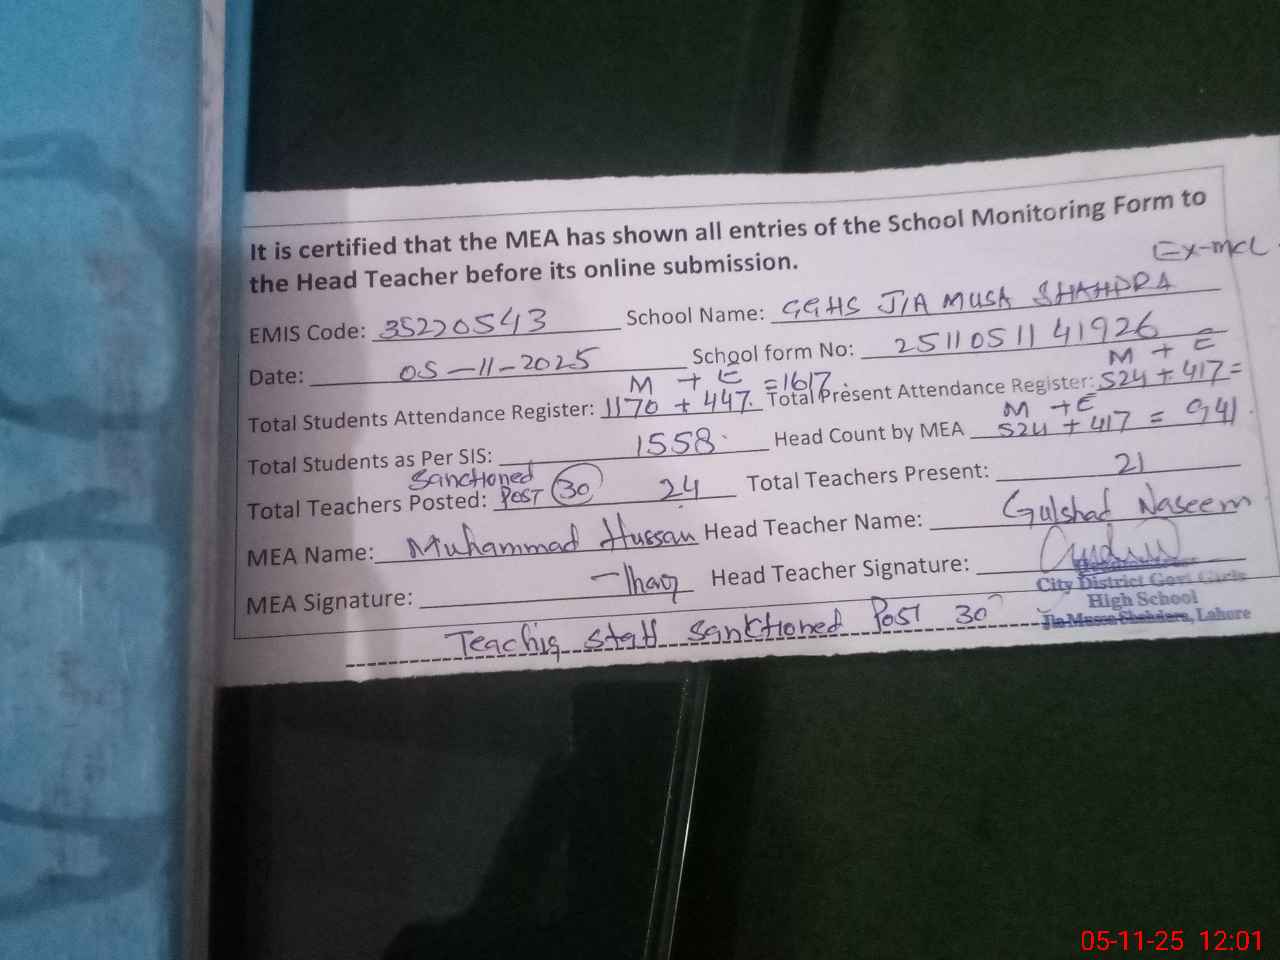 It is certified that the MEA has shown all entries of the School Monitoring Form to
the Head Teacher before its online submission.
Ex-MCL
EMIS Code: 35220543 School Name: GGHS JIA MUSA SHAHDRA
Date: 05-11-2025 School form No: 25110511 41926
M + E M + E
Total Students Attendance Register: 1170 + 447 = 1617 Total Present Attendance Register: 524 + 417 =
M + E
Total Students as Per SIS: 1558 Head Count by MEA 524 + 417 = 941
Sanctioned
Total Teachers Posted: Post 30 24 Total Teachers Present: 21
MEA Name: Muhammad Hussan Head Teacher Name: Gulshad Naseem
MEA Signature: Head Teacher Signature:
City District Govt Girls
High School
Jia Mussa Shahdara, Lahore
Teachig staff Sanctioned Post 30
05-11-25 12:01